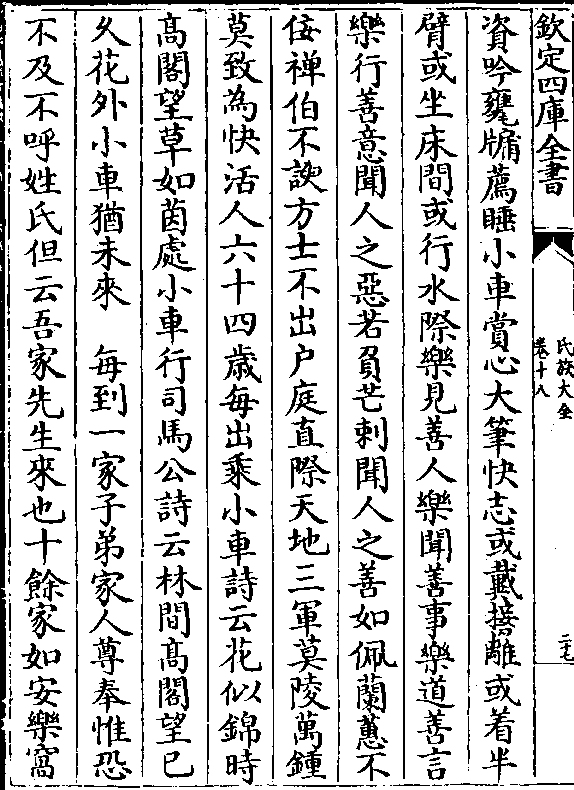 欽定四庫全書
氏族大全
卷十八
二七
資吟甕牖薦睡小車賞心大筆快志或戴接離或着半
臂或坐床間或行水際樂見善人樂聞善事樂道善言
樂行善意聞人之惡若負芒刺聞人之善如佩蘭蕙不
佞禅伯不諛方士不出户庭直際天地三軍莫陵萬鍾
莫致為快活人六十四歳每出乘小車詩云花似錦時
髙閣望草如茵處小車行司馬公詩云林間髙閣望已
乆花外小車猶未來　每到一家子弟家人尊奉惟恐
不及不呼姓氏但云吾家先生來也十餘家如安樂窩